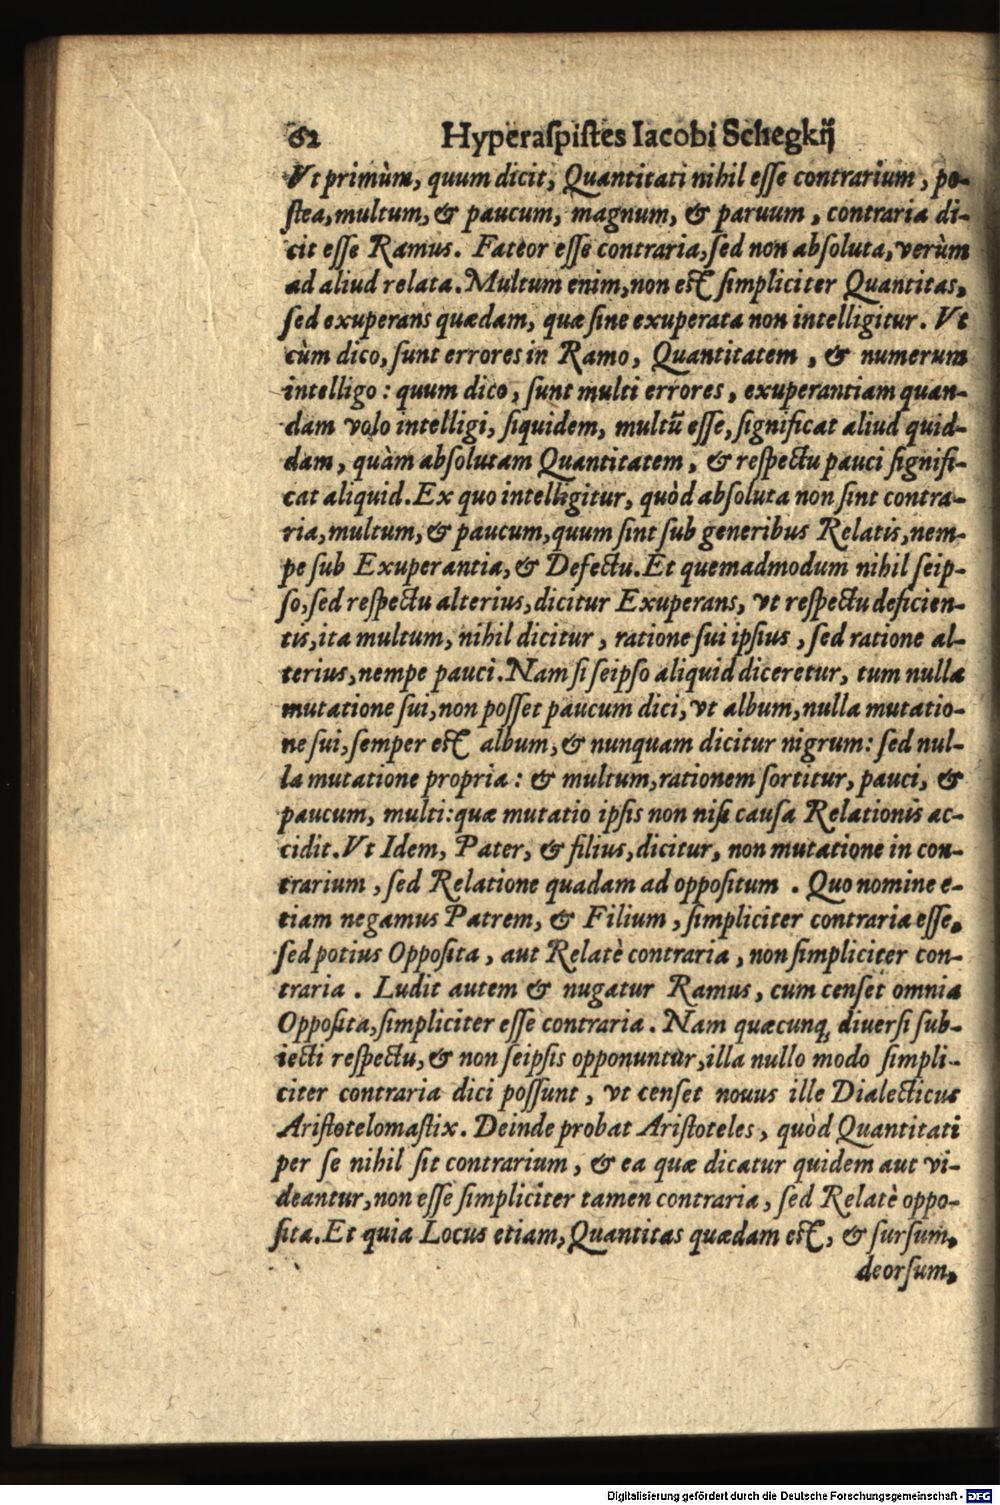 62 Hyperaſpiſtes Iacobi Schegkij
Vt primùm, quum dicit, Quantitati nihil eſſe contrarium, po-
ſtea, multum, & paucum, magnum, & paruum, contraria di-
cit eſſe Ramus. Fateor eſſe contraria, ſed non abſoluta, verùm
ad aliud relata. Multum enim, non eſt ſimpliciter Quantitas,
ſed exuperans quædam, quæ ſine exuperata non intelligitur. Vt
cùm dico, ſunt errores in Ramo, Quantitatem, & numerum
intelligo: quum dico, ſunt multi errores, exuperantiam quan-
dam volo intelligi, ſiquidem, multũ eſſe, ſignificat aliud quid-
dam, quàm abſolutam Quantitatem, & reſpectu pauci ſignifi-
cat aliquid. Ex quo intelligitur, quòd abſoluta non ſint contra-
ria, multum, & paucum, quum ſint ſub generibus Relatis, nem-
pe ſub Exuperantia, & Defectu. Et quemadmodum nihil ſeip-
ſo, ſed reſpectu alterius, dicitur Exuperans, vt reſpectu deficien-
tis, ita multum, nihil dicitur, ratione ſui ipſius, ſed ratione al-
terius, nempe pauci. Nam ſi ſeipſo aliquid diceretur, tum nulla
mutatione ſui, non poſſet paucum dici, vt album, nulla mutatio-
ne ſui, ſemper eſt album, & nunquam dicitur nigrum: ſed nul-
la mutatione propria: & multum, rationem ſortitur, pauci, &
paucum, multi: quæ mutatio ipſis non niſi cauſa Relationis ac-
cidit. Vt Idem, Pater, & filius, dicitur, non mutatione in con-
trarium, ſed Relatione quadam ad oppoſitum. Quo nomine e-
tiam negamus Patrem, & Filium, ſimpliciter contraria eſſe,
ſed potius Oppoſita, aut Relatè contraria, non ſimpliciter con-
traria. Ludit autem & nugatur Ramus, cum cenſet omnia
Oppoſita, ſimpliciter eſſe contraria. Nam quæcunq; diuerſi ſub-
iecti reſpectu, & non ſeipſis opponuntur, illa nullo modo ſimpli-
citer contraria dici poſſunt, vt cenſet nouus ille Dialecticus
Ariſtotelomaſtix. Deinde probat Ariſtoteles, quòd Quantitati
per ſe nihil ſit contrarium, & ea quæ dicatur quidem aut vi-
deantur, non eſſe ſimpliciter tamen contraria, ſed Relatè oppo-
ſita. Et quia Locus etiam, Quantitas quædam eſt, & ſurſum,
deorſum,
Digitalisierung gefördert durch die Deutsche Forschungsgemeinschaft - DFG